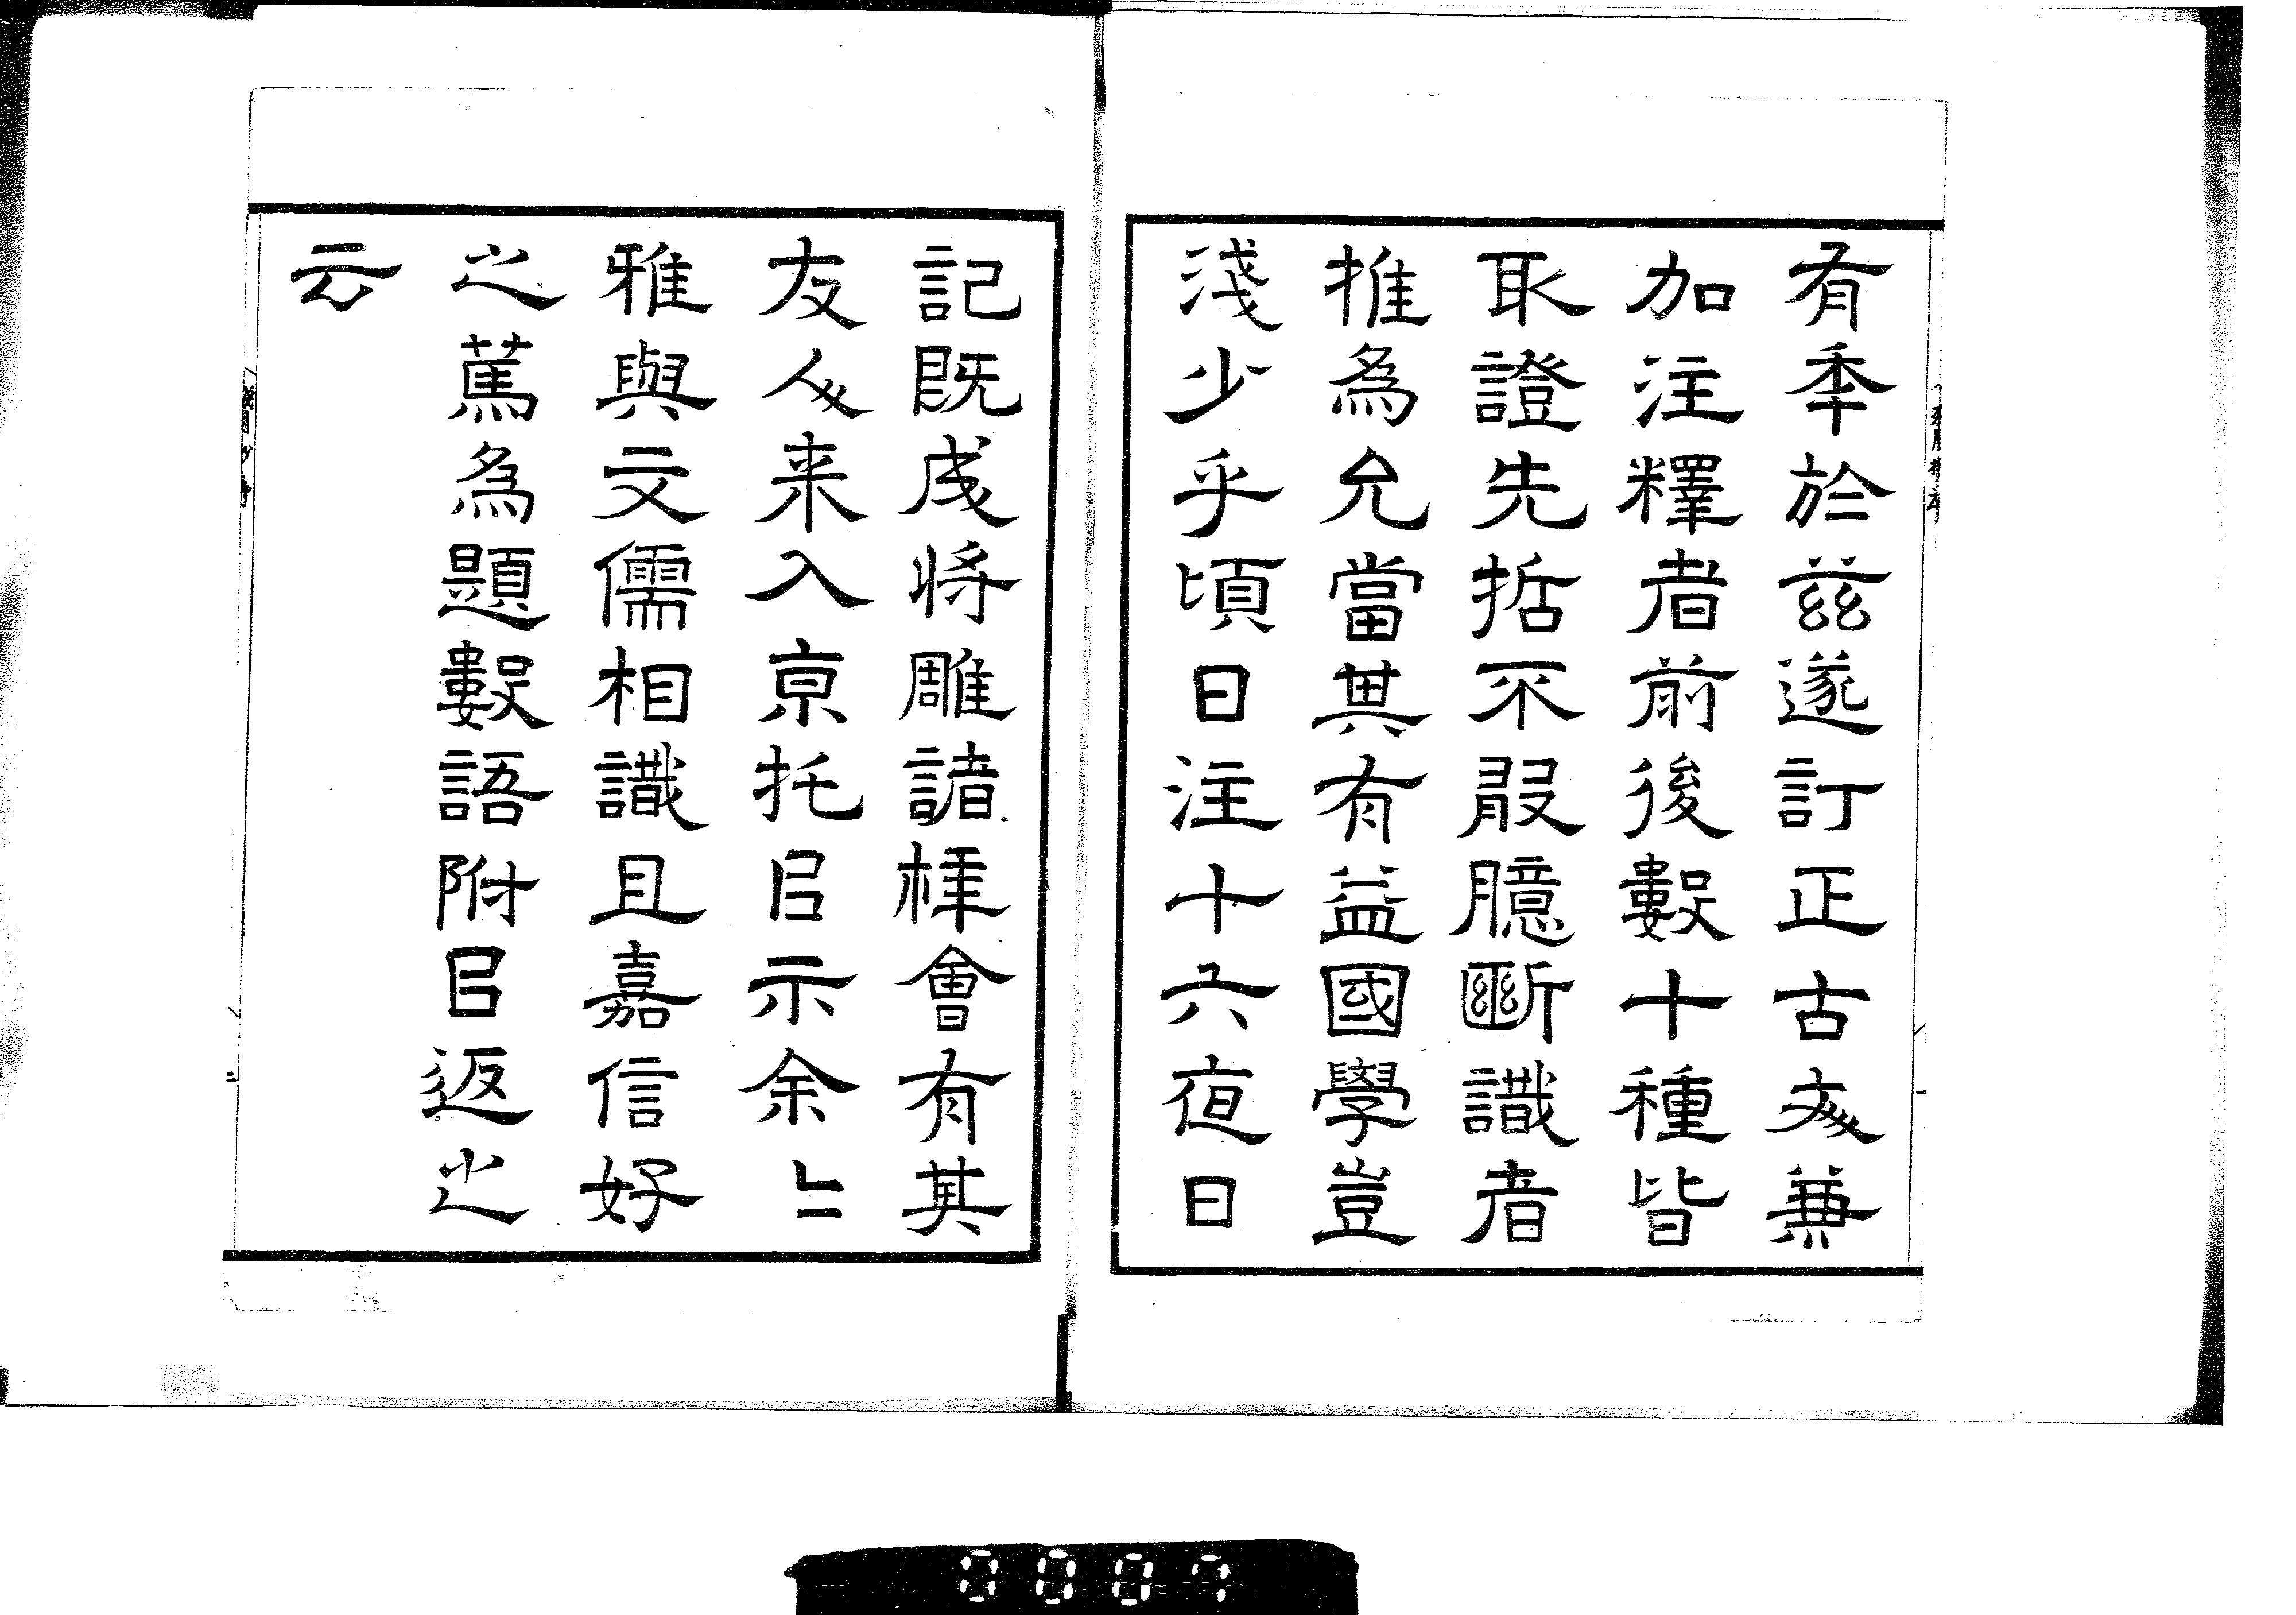 有年於茲遂訂正古文兼
加注釋者前後數十種皆
取證先哲不敢臆斷識者
推為允當其有益國學豈
淺少乎頃日注十六夜日
記既成將雕諸梓會有其
友人来入京托㠯示余〻
雅與文儒相識且嘉信好
之篤為題數語附㠯返之
云
0007